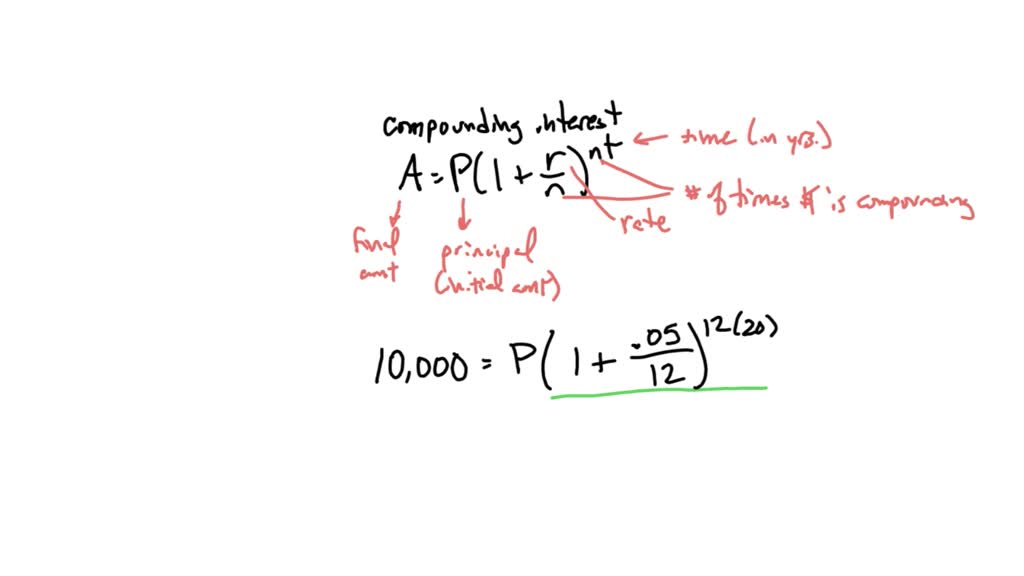 compounding interest
A = P(1 + r/n)^nt ← time (in yrs.)
# of times $ is compounding
rate
final amt
principal (initial amt)
10,000 = P(1 + .05/12)^12(20)